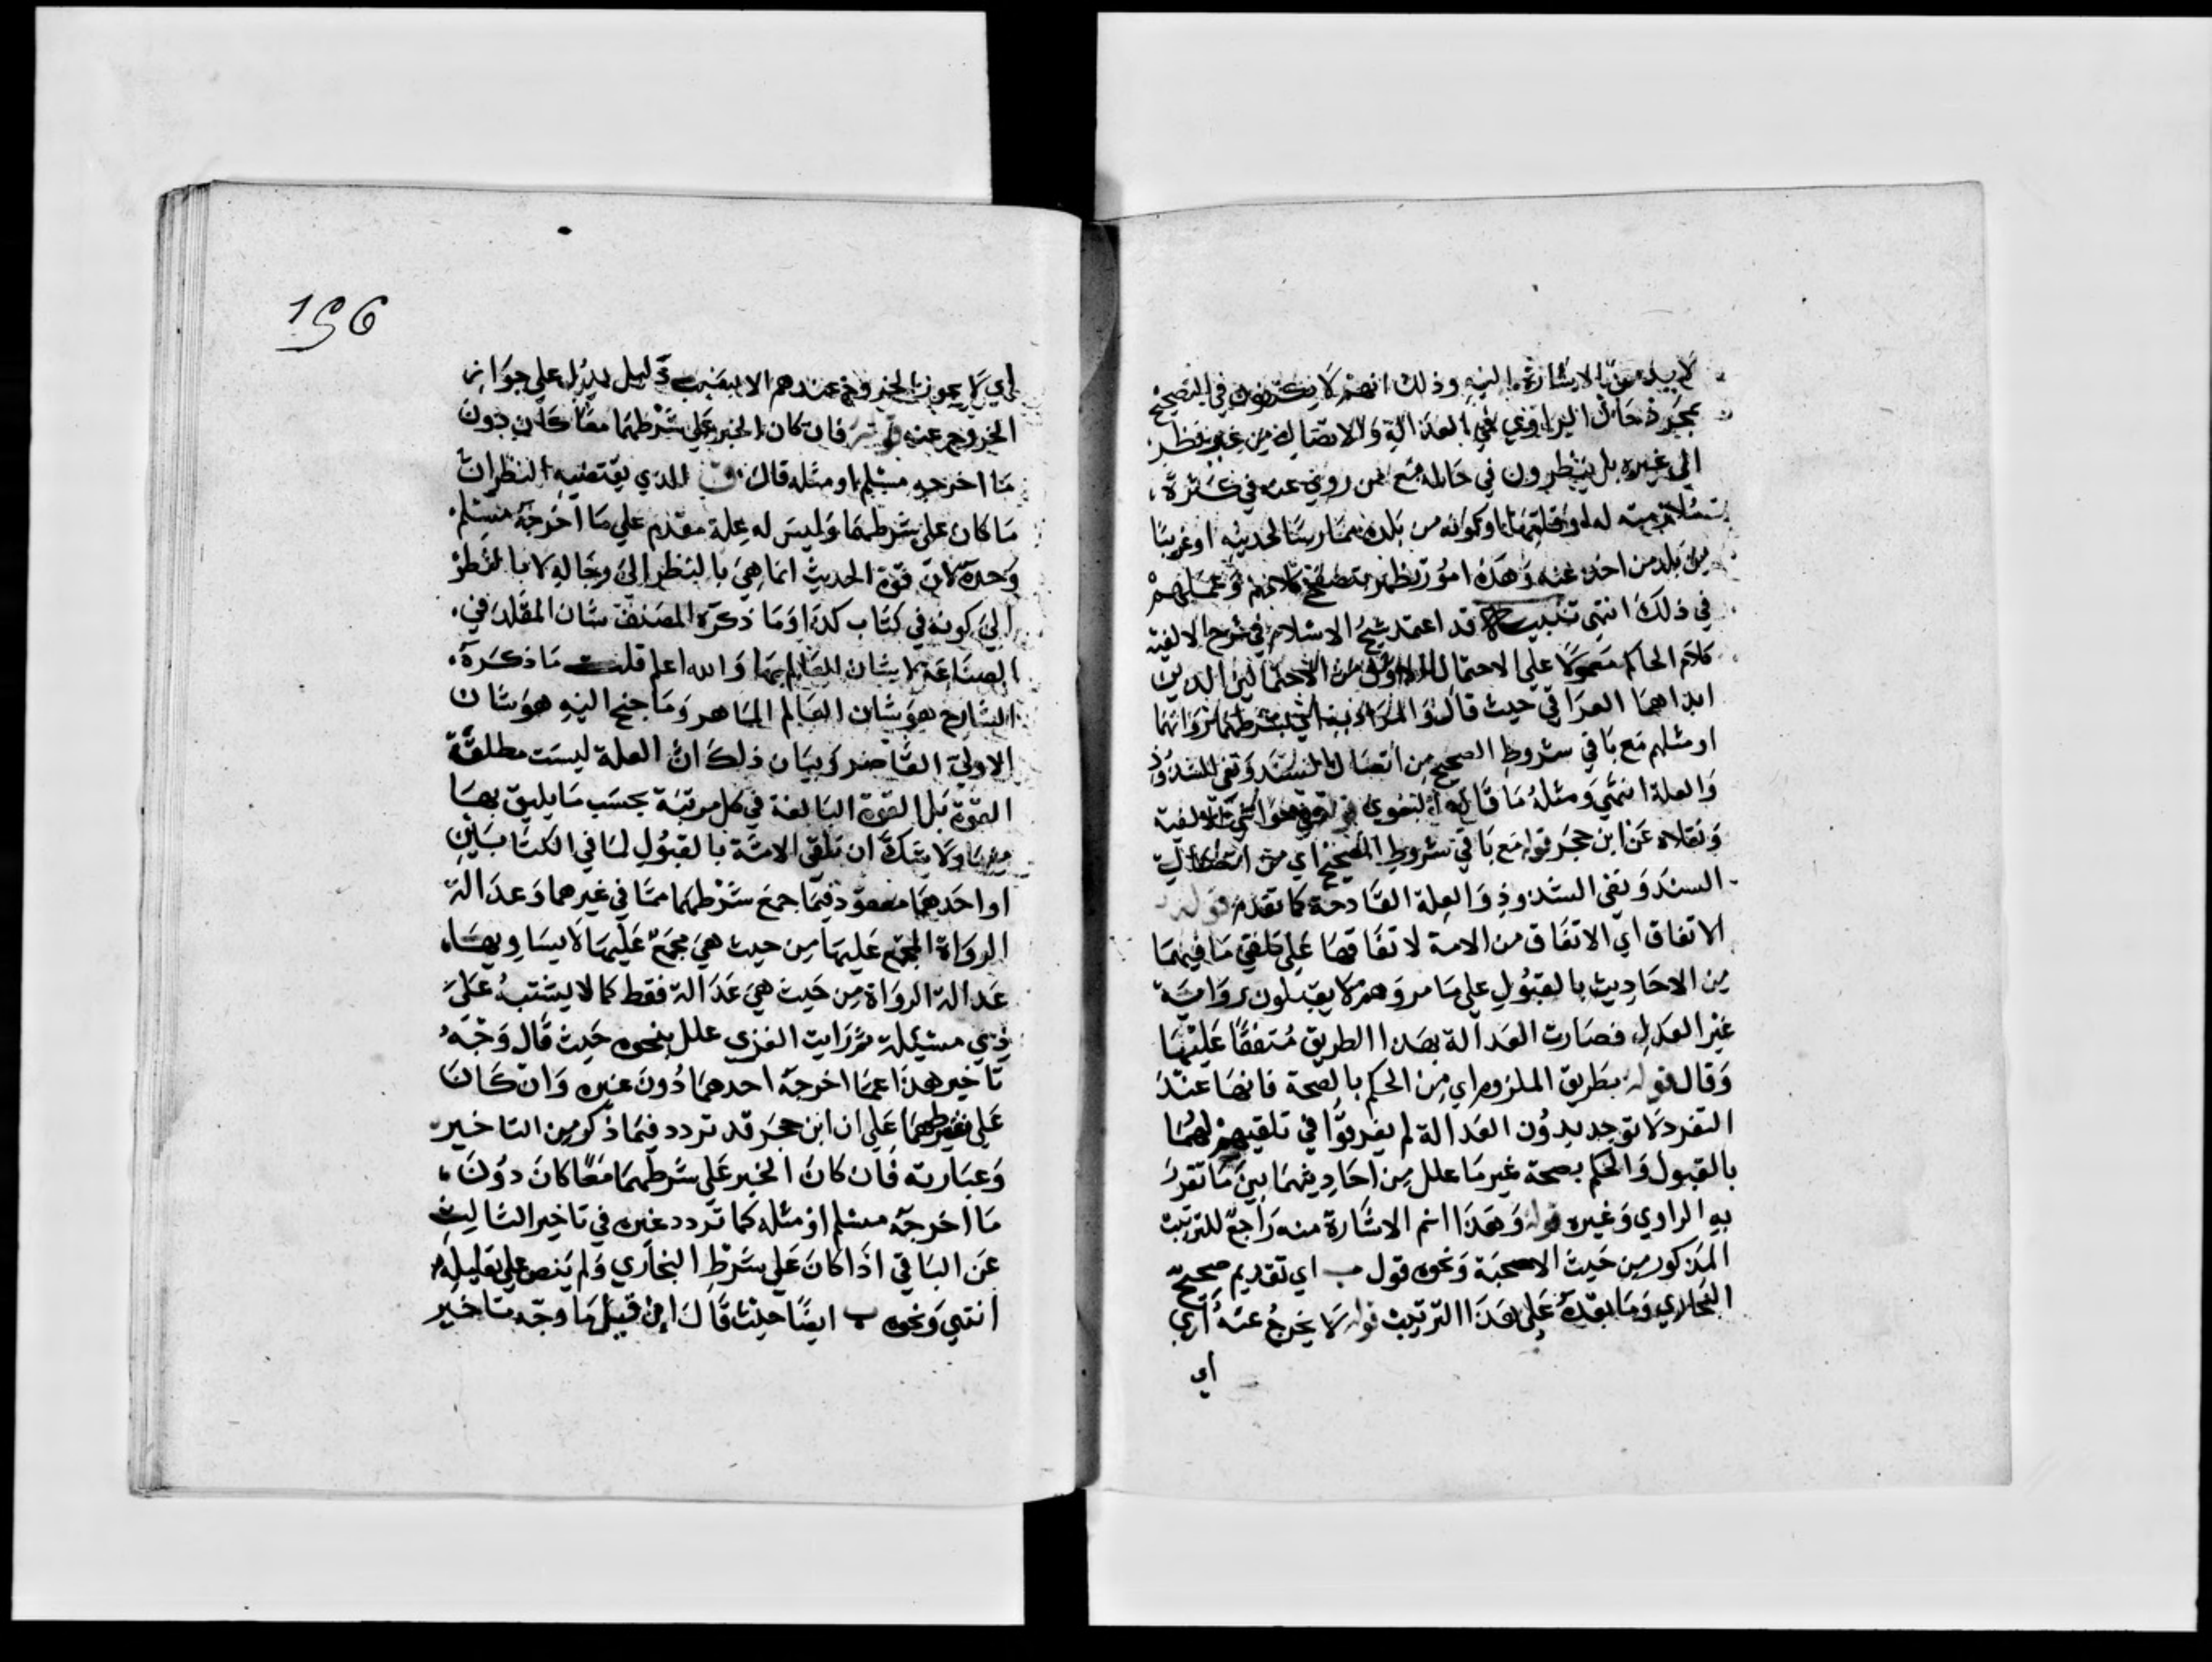 لا بد من الاشارة اليه وذلك انهم لا يكتفون في التصحيح
بمجرد حال الراوي في العدالة والاتصال من غير نظر
الى غيره بل ينظرون في حاله مع من روي عنه في كثرة
ملازمته له او قلتها او كونه من بلده ممارسا لحديثه او غريبا
من بلد من اخذ عنه وهذه امور تظهر بتصفح كلامهم وعملهم
في ذلك انتهى تنبيه قد اعتمد شيخ الاسلام في شرح الالفية
كلام الحاكم محمولا على الاحتمال الاول من الاحتمالين الذين
ابداهما العراقي حيث قال والمراد به اي بشرطهما رواتهما
او مثلهم مع باقي شروط الصحيح من اتصال السند ونفي الشذوذ
والعلة انتهى ومثله ما قاله حواشي الالفية
ونقلاه عن ابن حجر قوله مع باقي شروط الصحيح اي من اتصال
السند ونفى الشذوذ والعلة القادحة كما تقدم قوله
الاتفاق اي الاتفاق من الامة لاتفاقها على تلقي ما فيهما
من الاحاديث بالقبول على ما مر وهم لا يقبلون رواية
غير العدل فصارت العدالة بهذا الطريق متفقا عليها
وقال قوله بطريق الملزوم اي من الحكم بالصحة فانها عند
التفرد لا توجد بدون العدالة لم يفرقوا في تلقيهم لهما
بالقبول والحكم بصحة غير ما علل من احاديثهما بين ما تفرد
به الراوي وغيره قوله وهذا اسم الاشارة منه راجع للترتيب
المذكور من حيث الاصحية ونحوه قول ب اي تقديم صحيح
البخاري وما بعده على هذا الترتيب قوله لا يخرج عنه اي
اي
196
اي لا يجوز الخروج عندهم الا بنصب دليل يدل على جواز
الخروج عنه قوله فان كان الخبر على شرطهما معا كان دون
ما اخرجه مسلم او مثله قال ق الذي يقتضيه النظر ان
ما كان على شرطهما وليس له علة مقدم على ما اخرجه مسلم
وحده لان قوة الحديث انما هي بالنظر الى رجاله لا بالنظر
الى كونه في كتاب كذا وما ذكره المصنف شان المقلد في
الصناعة لا شان العالم بها والله اعلم قلت ما ذكره
الشارح هو شان العالم الماهر وما جنح اليه هو شان
الاولي القاصر وبيان ذلك ان العلة ليست مطلقة
القوة بل القوة البالغة في كل مرتبة بحسب ما يليق بها
ولا شك ان تلقى الامة بالقبول لما في الكتابين
او احدهما مفقود فيما جمع شرطهما مما في غيرهما وعدالة
الرواة المجمع عليها من حيث هي مجمع عليها لا يساويها
عدالة الرواة من حيث هي عدالة فقط كما لا يشتبه على
ذي مسئلة ثم رايت الغزي علل بنحوه حيث قال وجه
تاخير هذا عما اخرجه احدهما دون غيره وان كان
على شرطهما على ان ابن حجر قد تردد فيما ذكر من التاخير
وعبارته فان كان الخبر على شرطهما معا كان دون
ما اخرجه مسلم او مثله كما تردد غيره في تاخير الثالث
عن الباقي اذا كان على شرط البخاري ولم ينص على تعليله
انتهي ونحوه ب ايضا حيث قال ان قيل ما وجه تاخير